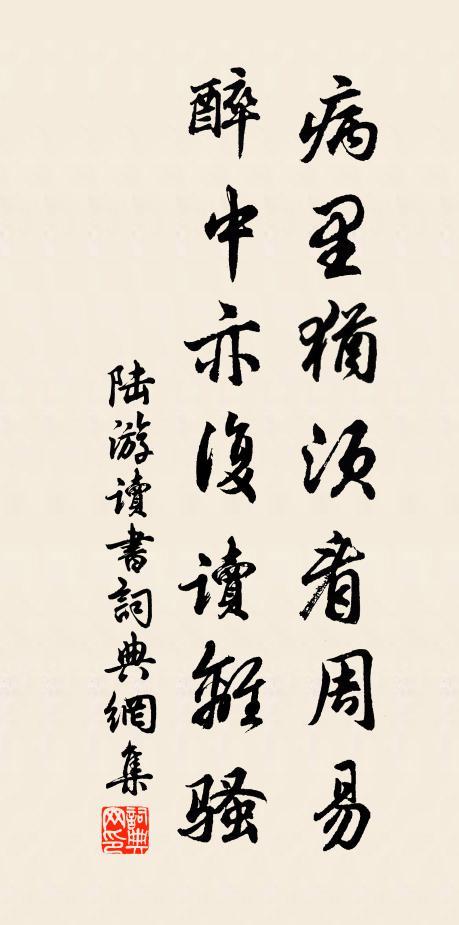 病里猶須看周易
醉中亦復讀離騷
陸游讀書詞典網集
詞典网印